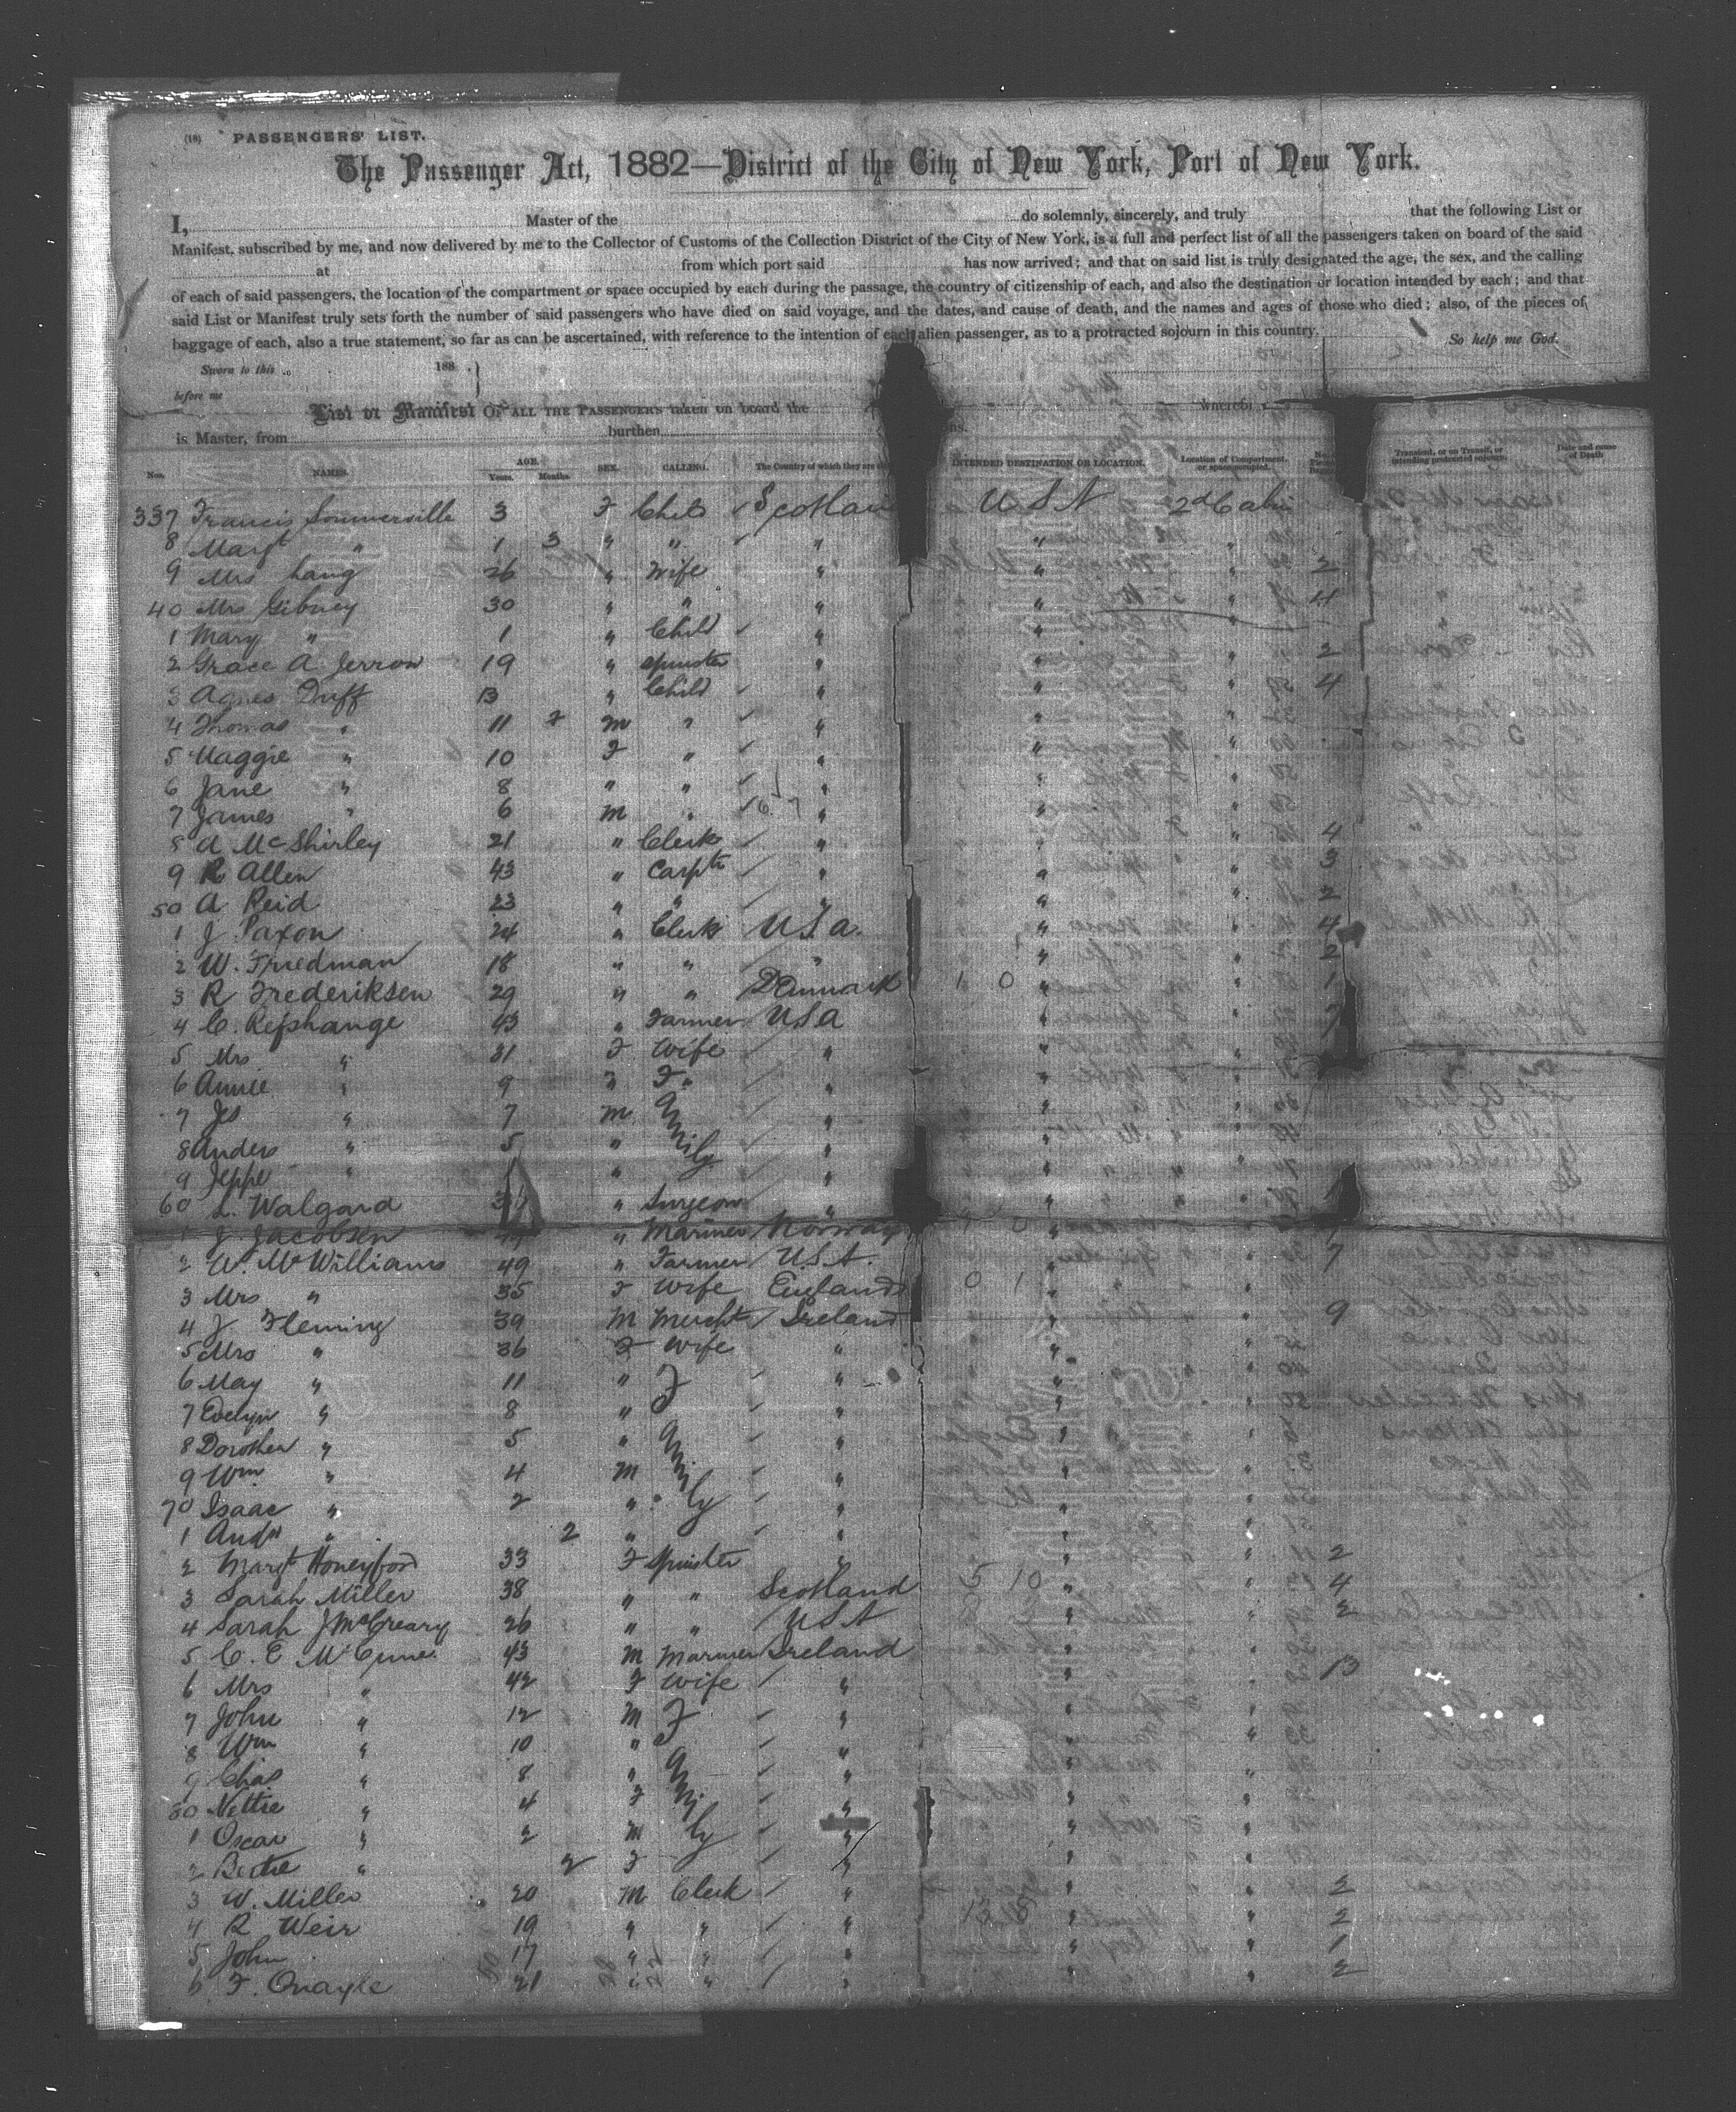 (18) PASSENGERS' LIST.
The Passenger Act, 1882—District of the City of New York, Port of New York.
I, Master of the do solemnly, sincerely, and truly that the following List or
Manifest, subscribed by me, and now delivered by me to the Collector of Customs of the Collection District of the City of New York, is a full and perfect list of all the passengers taken on board of the said
at from which port said has now arrived; and that on said list is truly designated the age, the sex, and the calling
of each of said passengers, the location of the compartment or space occupied by each during the passage, the country of citizenship of each, and also the destination or location intended by each; and that
said List or Manifest truly sets forth the number of said passengers who have died on said voyage, and the dates, and cause of death, and the names and ages of those who died; also, of the pieces of
baggage of each, also a true statement, so far as can be ascertained, with reference to the intention of each alien passenger, as to a protracted sojourn in this country. So help me God.
Sworn to this 188
before me
List or Manifest OF ALL THE PASSENGERS taken on board the whereof
is Master, from burthen ons.
Nos. NAMES. AGE. Years. Months. SEX. CALLING. The Country of which they are INTENDED DESTINATION OR LOCATION. Location of Compartment, or space occupied. Transient, or on Transit, or intending protracted sojourn. Date and cause of Death
337 Francis Sommerville 3 F Child Scotlan USA 2d Cabin
8 Margt " 1 3 " " " "
9 Mrs Lang 26 " Wife " " " 2
40 Mrs Gibney 30 " " " " " 4
1 Mary " 1 " Child " " "
2 Grace A Jerron 19 " Spinster " " " 2
3 Agnes Duff 13 " Child " " " 4
4 Thomas " 11 M " " " "
5 Maggie " 10 F " " " "
6 Jane " 8 " " " " "
7 James " 6 M " " " "
8 A McShirley 21 " Clerk " " " 4
9 R Allen 43 " Carptr " " " 3
50 A Reid 23 " " " " " 2
1 J. Paxon 24 " Clerk USA. " " 4
2 W. Friedman 18 " " " " " 2
3 R Frederiksen 29 " " Denmark 1 0 " " 1
4 C. Rejshange 43 " Farmer USA " " 7
5 Mrs " 31 F Wife " " "
6 Annie " 9 " Fa " " "
7 Js " 7 M " " "
8 Anders " 5 " mily " " "
9 Jeppe " " " " "
60 L. Walgard " Surgeon " " "
1 J. Jacobsen " Mariner Norway 0 " "
2 W. McWilliams 49 " Farmer U.S.A. " " 7
3 Mrs " 35 F Wife England 0 1 " "
4 J Fleming 39 M Mercht Ireland " " 9
5 Mrs " 36 F Wife " " "
6 May " 11 " F " " "
7 Evelyn " 8 " a " " "
8 Dorothea " 5 " " " "
9 Wm " 4 M mi " " "
70 Isaac " 2 " ly " " "
1 Andw " 2 " " " "
2 Margt Honeyford 33 F Spinster " " " 2
3 Sarah Miller 38 " " Scotland 5 10 " " 4
4 Sarah J McCreary 26 " " USA " " 2
5 C. E McCune 43 M Mariner Ireland " " 13
6 Mrs " 42 F Wife " " "
7 John " 12 M F " " "
8 Wm " 10 " a " " "
9 Chas " 8 " " " "
80 Nettie " 4 F mi " " "
1 Oscar " 2 M ly " " "
2 Bertie " 2 F " " "
3 W. Miller 20 M Clerk " " " 2
4 R Weir 19 " " " 13 8 " " 2
5 John 17 " " " " " 1
6 F. Quayle 21 " " " " " 2